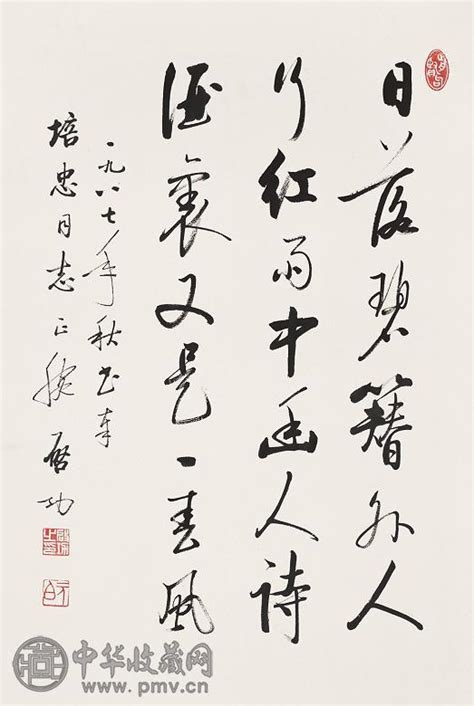 日落碧簪外人
行红雨中幽人诗
酒裏又是一春風
一九八七年秋书奉
培忠同志正腕 启功
元白
中华收藏网
www.pmv.cn